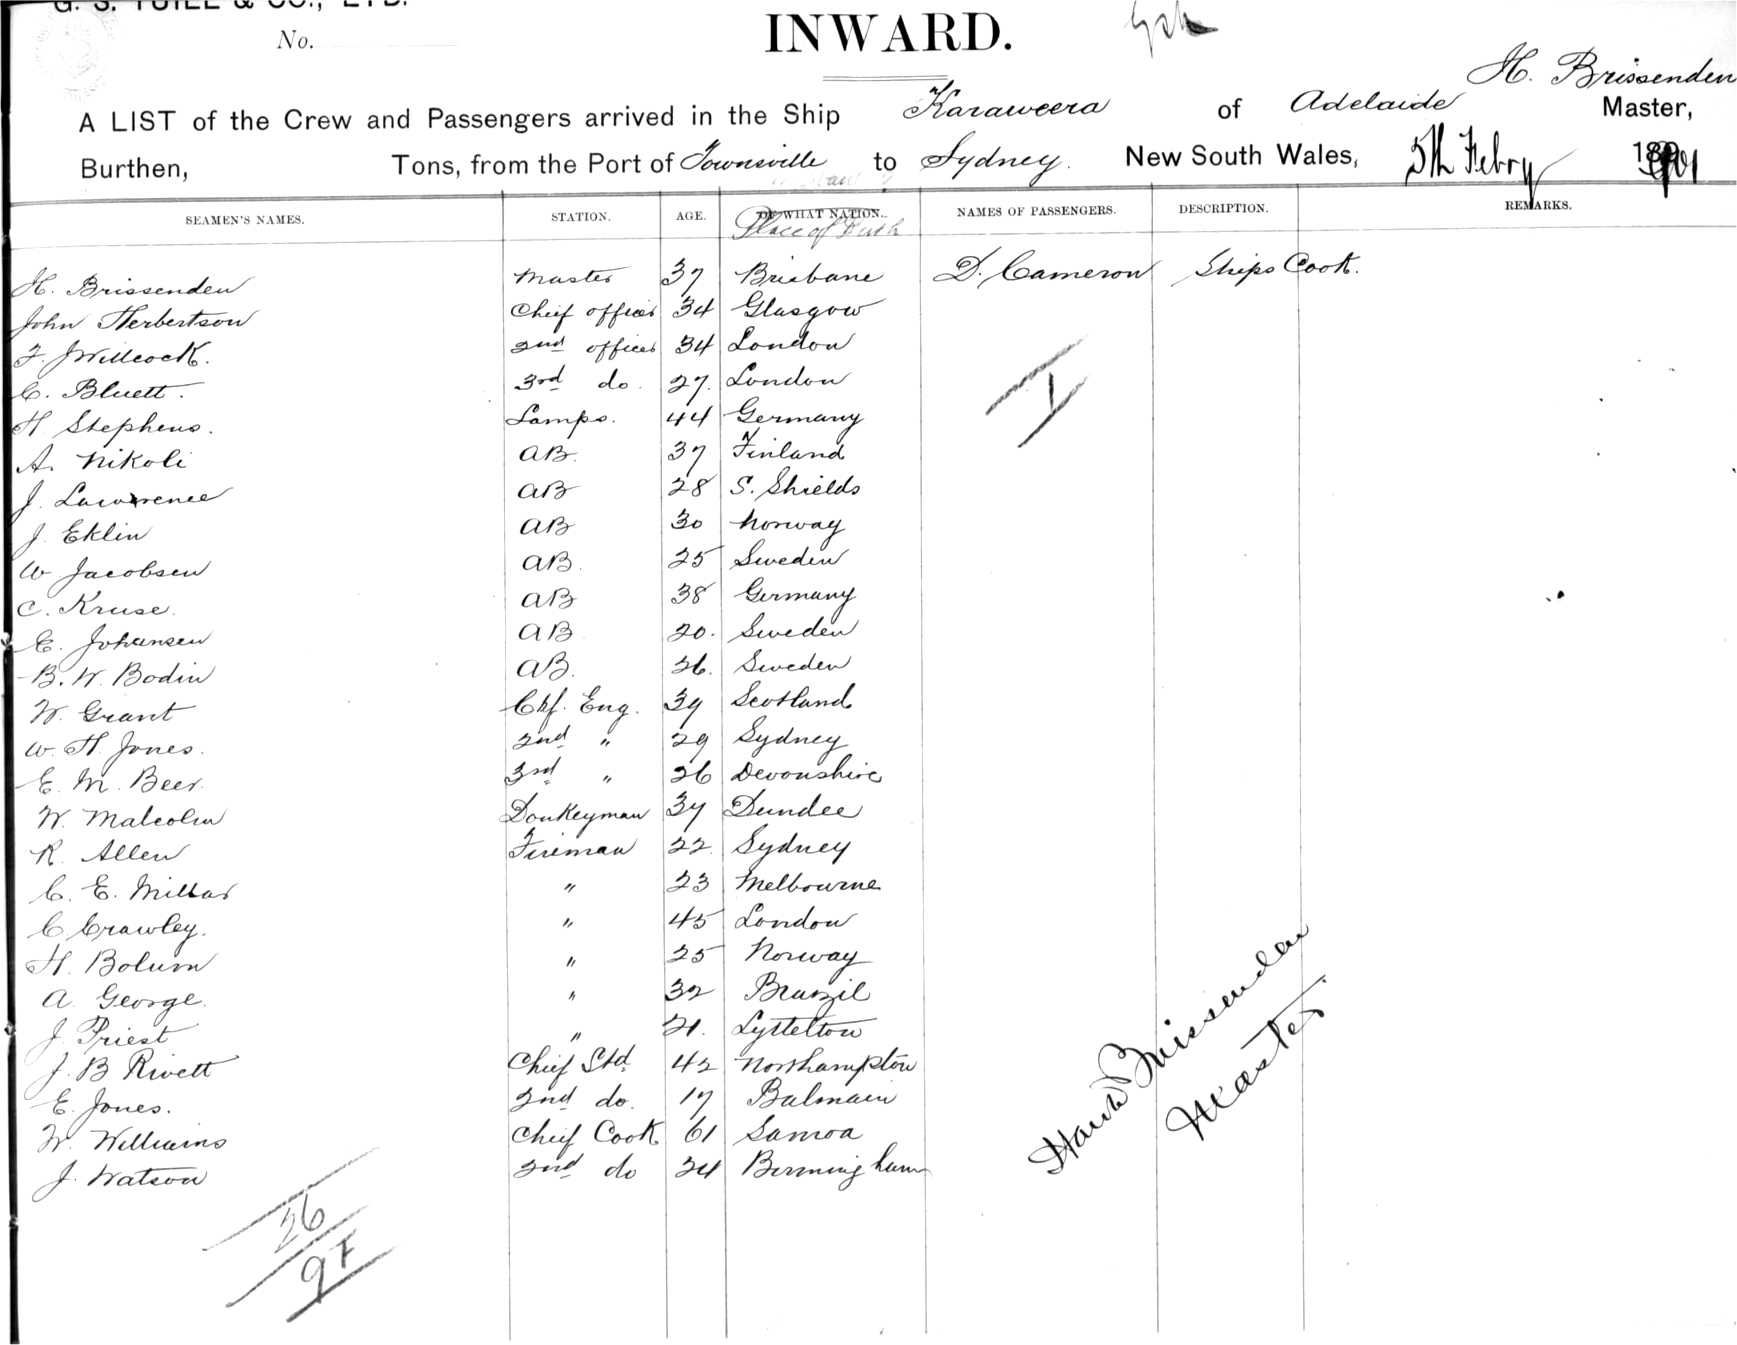 G. S. YUILL & CO., LTD.
No.
INWARD.
H. Brissenden
A LIST of the Crew and Passengers arrived in the Ship Karaweera of Adelaide Master,
Burthen, Tons, from the Port of Townsville to Sydney. New South Wales, 5th Febry 1901
SEAMEN'S NAMES. STATION. AGE. OF WHAT NATION. NAMES OF PASSENGERS. DESCRIPTION. REMARKS.
Place of Birth
H. Brissenden Master 37 Brisbane D. Cameron Ships Cook.
John Herbertson Chief officer 34 Glasgow
F. J Willcock. 2nd officer 34 London
C. Bluett. 3rd do. 27. London
H Stephens. Lamps. 44 Germany
A. Nikoli AB. 37 Finland
J. Lawrence AB 28 S. Shields
J. Eklin AB 30 Norway
W Jacobsen AB. 25 Sweden
C. Kruse. AB 38 Germany
E. Johansen AB 20. Sweden
B. W. Bodin AB. 26. Sweden
W. Grant Chf. Eng. 39 Scotland
W. H. Jones. 2nd " 29 Sydney
E. M. Beer. 3rd " 26 Devonshire
W. Malcolm Donkeyman 37 Dundee
R. Allen Fireman 22. Sydney
C. E. Millar " 23 Melbourne
C Crawley. " 45 London
H. Bolum " 25 Norway
A. George. " 32 Brazil
J. Priest " 21. Lyttelton
J. B Rivett Chief Std. 42 Northampton
E. Jones. 2nd do. 17 Balmain
W. Williams Chief Cook 61 Samoa
J. Watson 2nd do 24 Birmingham
1
Brissenden
Master
26
27